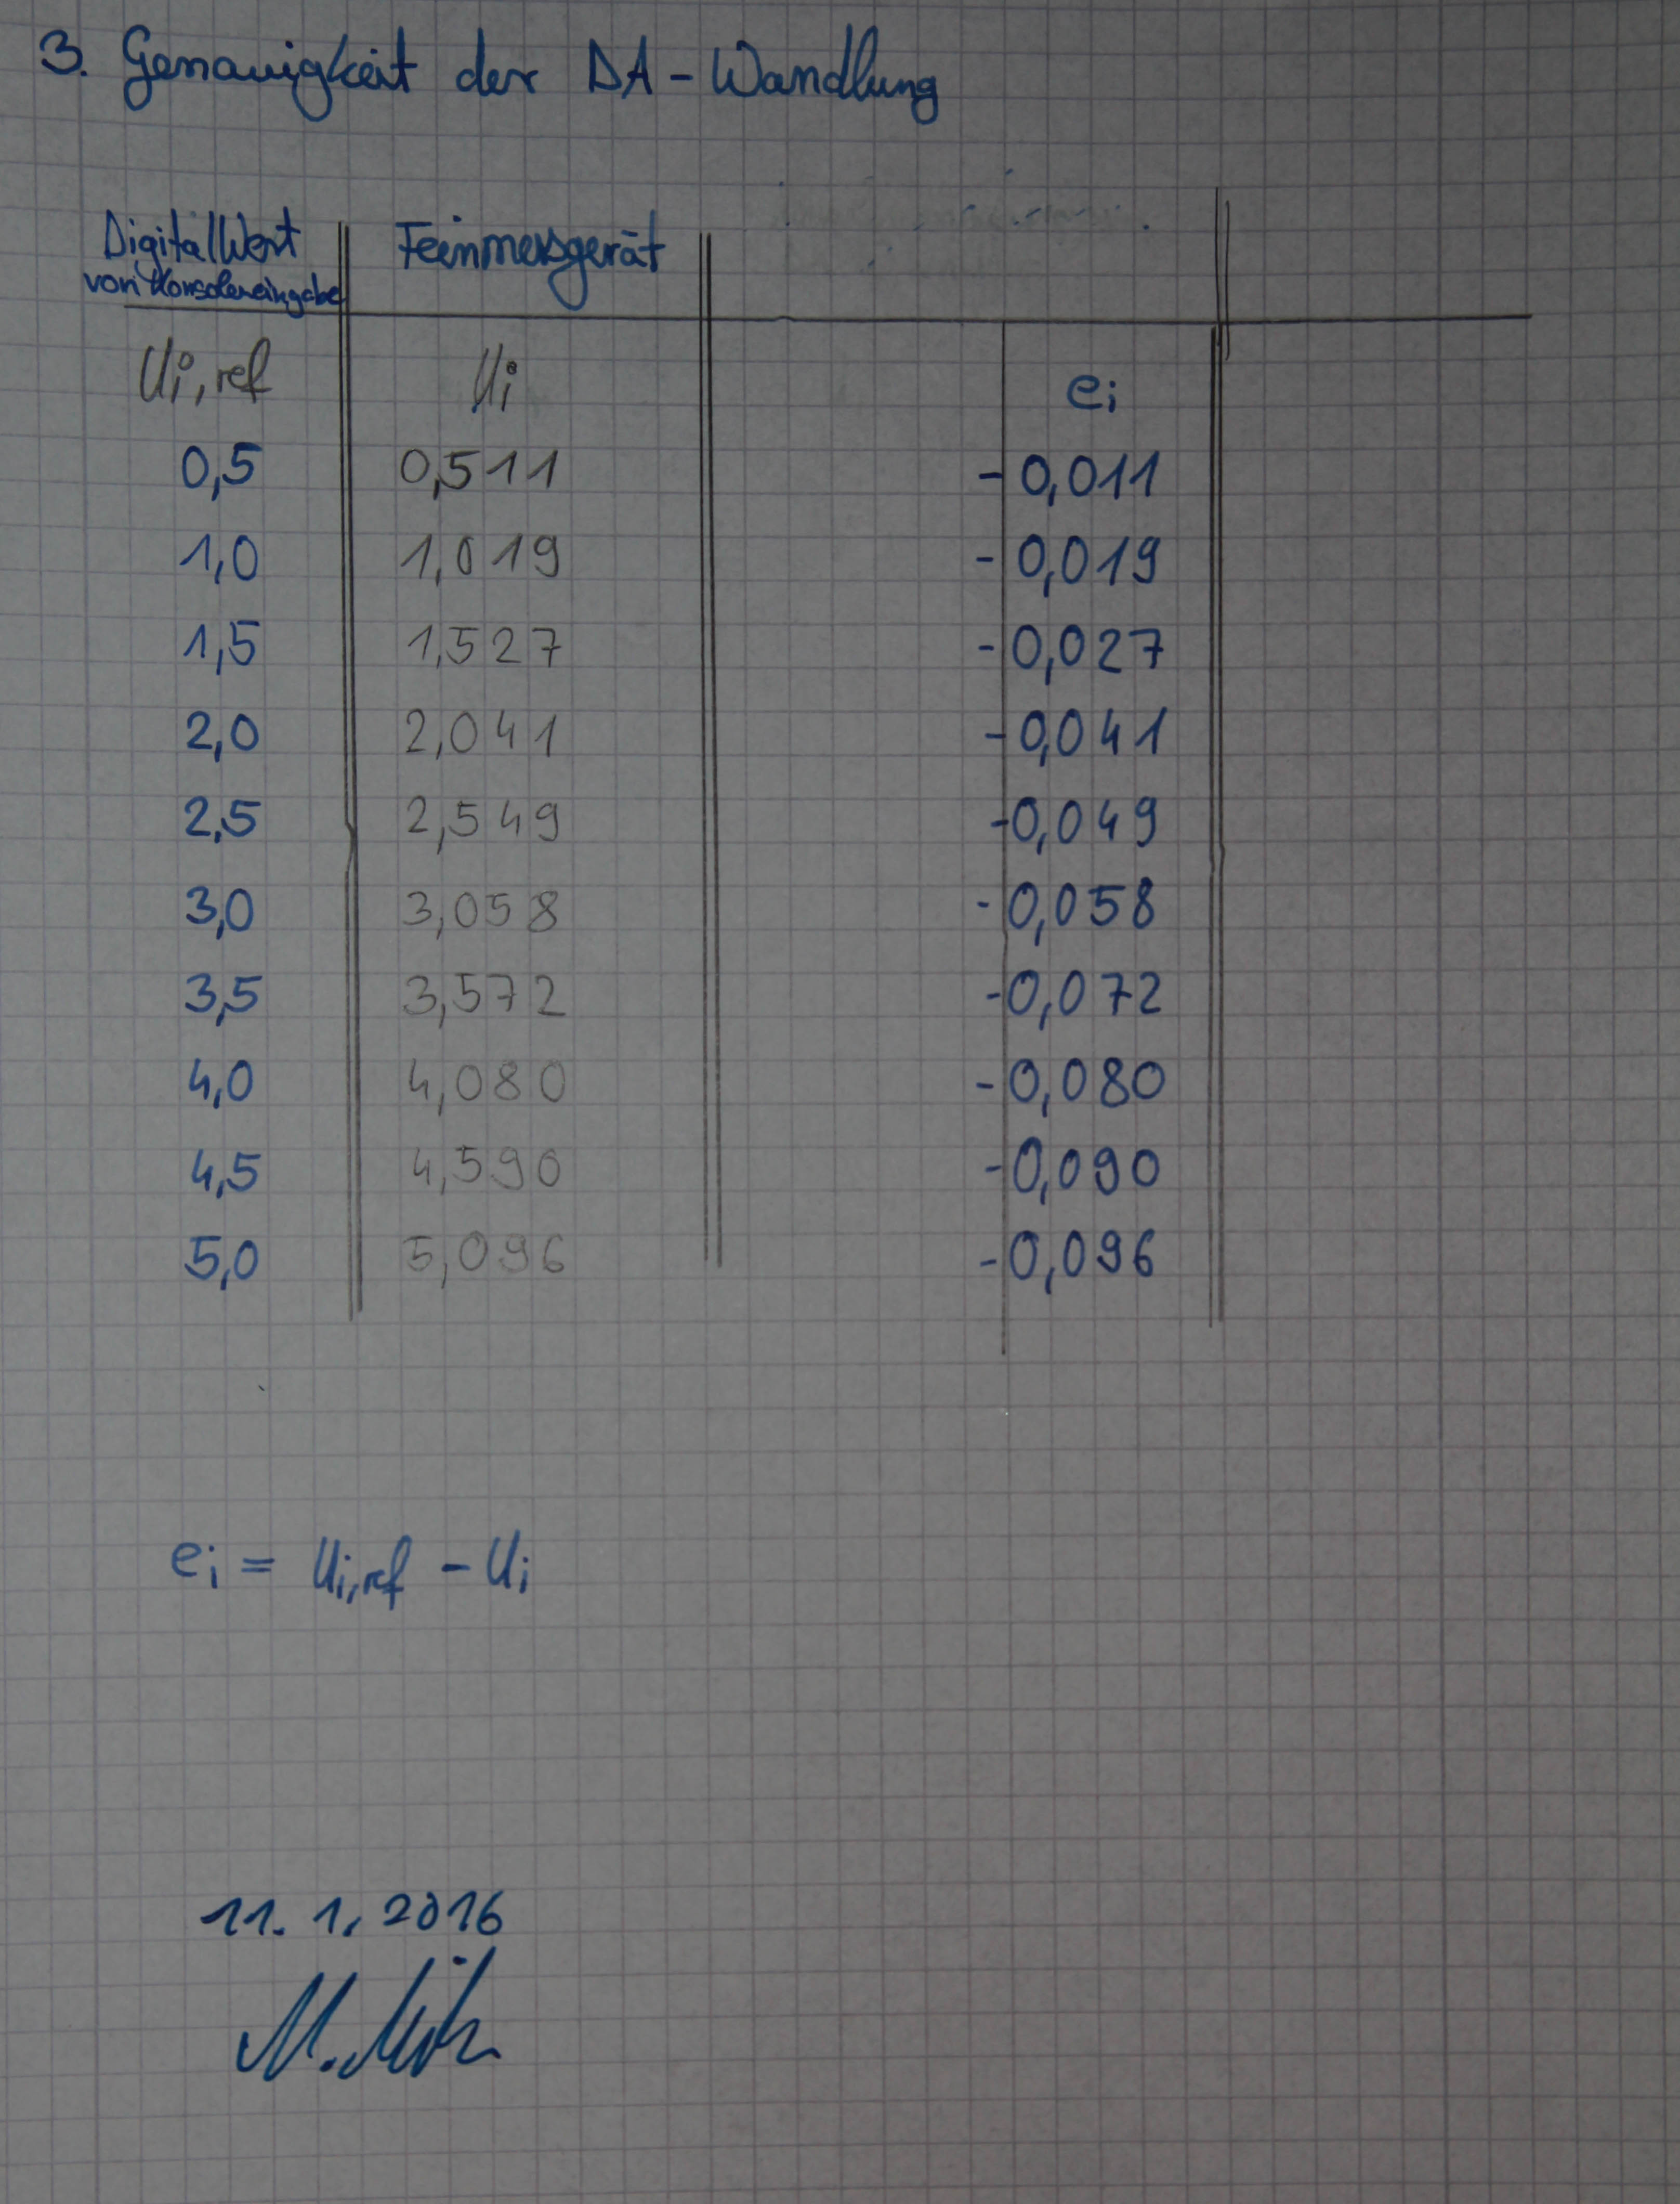 3. Genauigkeit der DA-Wandlung
DigitalWert Feinmessgerät
von Konsoleneingabe
Ui,ref Ui ei
0,5 0,511 -0,011
1,0 1,019 -0,019
1,5 1,527 -0,027
2,0 2,041 -0,041
2,5 2,549 -0,049
3,0 3,058 -0,058
3,5 3,572 -0,072
4,0 4,080 -0,080
4,5 4,590 -0,090
5,0 5,096 -0,096
ei = Ui,ref - Ui
11. 1. 2016
M.